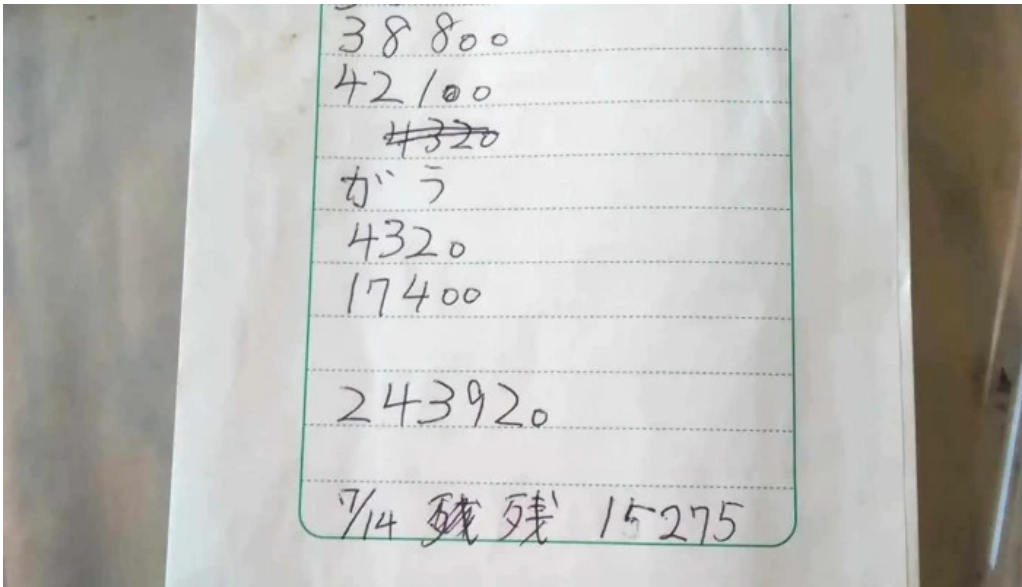 38800
42100
4320
がう
4320
17400
243920
7/14 残 残 15275